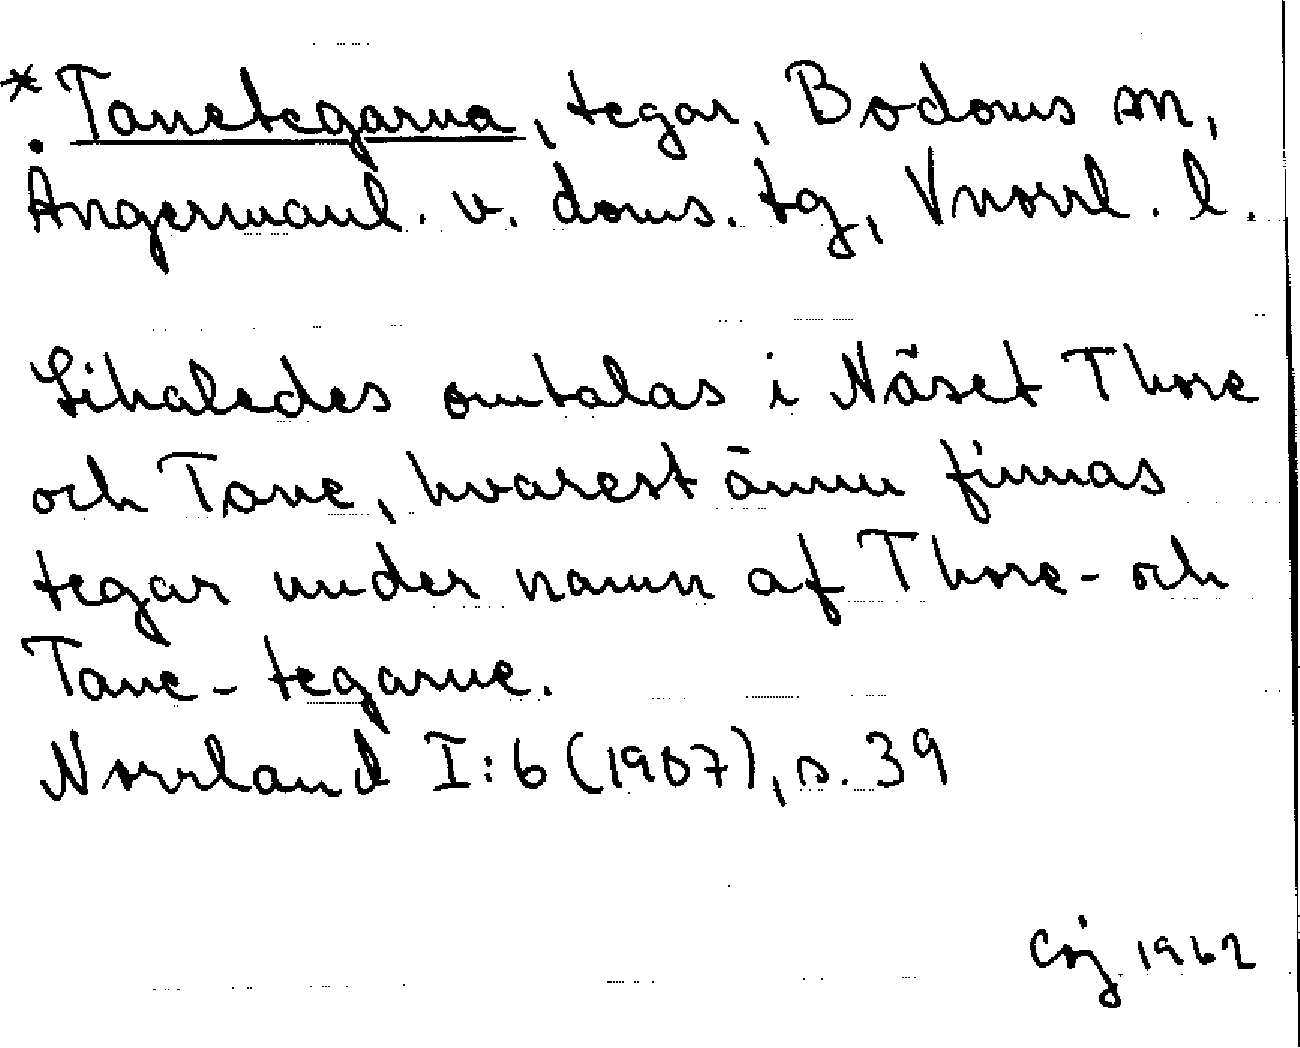 * Tanetegarna, tegar, Bodoms sn,
Ångermanl. v. doms. tg, Vnorrl. l.
Likaledes omtalas i Näset Thore
och Tane, hvarest ännu finnas
tegar under namn af Thore- och
Tane-tegarne.
Norrland I:6 (1907), s. 39
1962